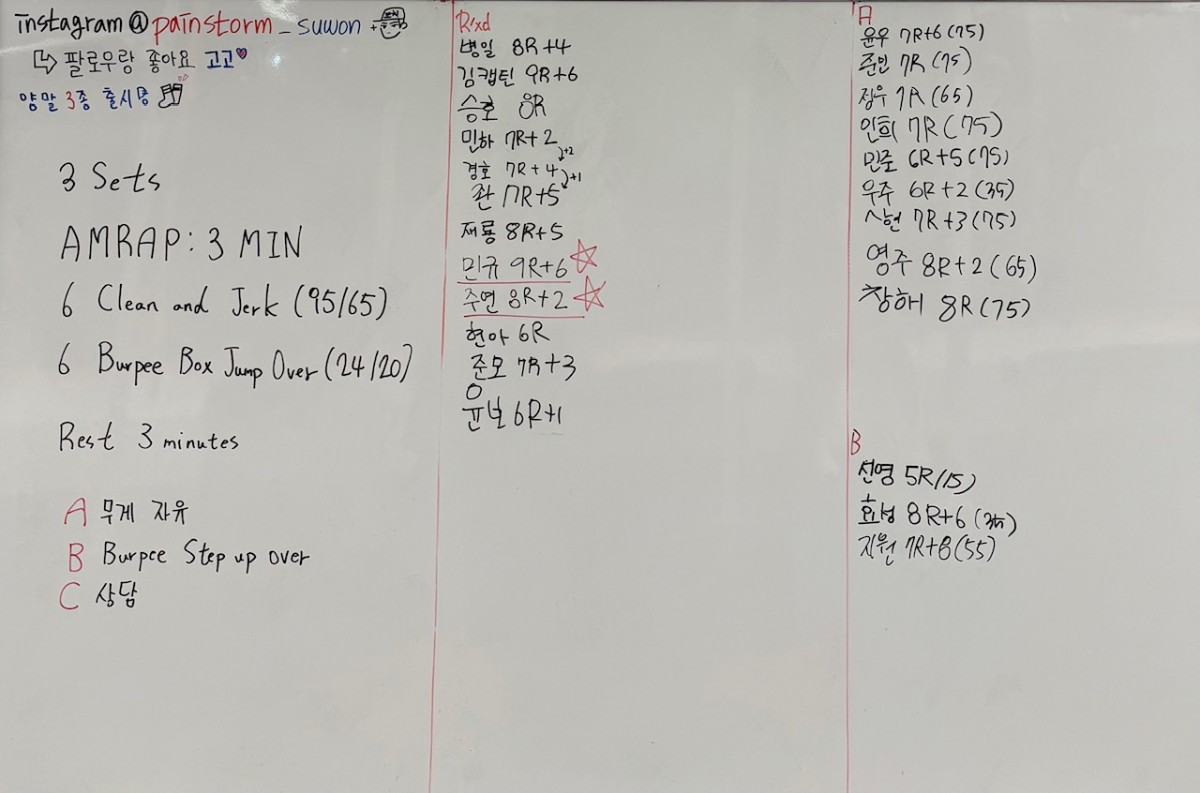 instagram @painstorm_suwon +
팔로우랑 좋아요 고고
양말 3종 출시중
3 Sets
AMRAP: 3 MIN
6 Clean and Jerk (95/65)
6 Burpee Box Jump Over (24/20)
Rest 3 minutes
A 무게 자유
B Burpee Step up over
C 상담
R'xd
병일 8R+4
김캡틴 9R+6
승호 8R
민하 7R+2
+2
경호 7R+4
+1
좐 7R+5
재룡 8R+5
민규 9R+6
주연 8R+2
현아 6R
준모 7R+3
윤보 6R+1
A
윤우 7R+6 (75)
준민 7R (75)
정우 7R (65)
인희 7R (75)
민준 6R+5 (75)
우주 6R+2 (35)
7R+3 (75)
영주 8R+2 (65)
창해 8R (75)
B
선영 5R (15)
효성 8R+6
지원 7R+8 (55)